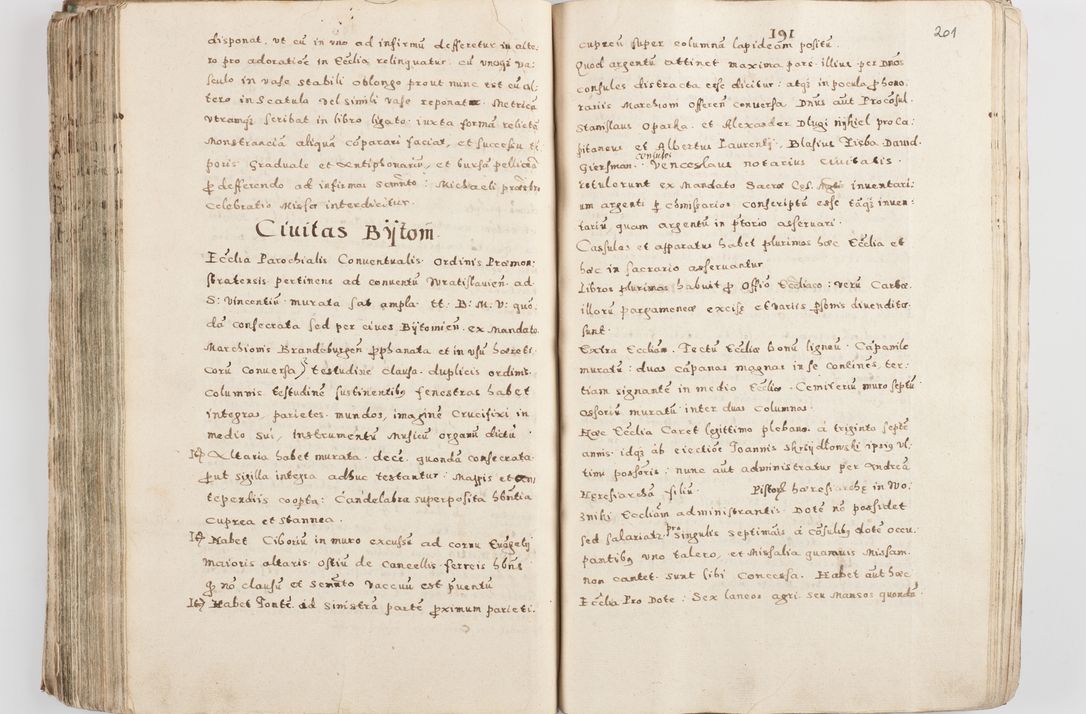 disponat. vt cu in vno ad infirmu defferetur in alte:
ro pro adoratioe in Ecclia relinquatur. cu vnoqz va:
sculo in vase stabili oblongo prout nunc est cu al:
tero in Scatula vel simili vase reponat. Metrica
vtramqz scribat in libro ligato: iuxta forma relicta
Monstrancia aliqua coparari faciat, et successu te:
poris Graduale et Antiphonariu, et bursa pellicea
p defferendo ad infirmos Scamto: Michaeli prarbro
Celebratio Missa interdicitur.
Ciuitas Bÿtom
Ecclia Parochialis Conuentualis Ordinis Praemon:
stratensis pertinens ad conuentu Wratislauien. ad
S: Vincentiu murata sat ampla tt. B: M. V: quo:
da consecrata sed per ciues Bÿtomien. ex Mandato
Marchionis Brandeburgen pphanata et in vsu haereti:
coru Conuersa, testudine clausa. duplicis ordinis
Columnis testudine sustinentibq fenestras habet
integras, parietes mundos, imagine Crucifixi in
medio sui, Instrumentu Musicu organu dictu
Altaria habet murata. dece. quonda consecrata
put sigilla integra adhuc testantur. Mappis et an
tependiis coopta: Candelabra superposita hbntia
Cuprea et Stannea.
Habet Ciboriu in muro excusse ad cornu Euagelÿ
Maioris altaris. Ostiu de Cancellis ferreis hbns
qz no clausu et Scamto vaccuu est puentu
Habet Fonte ad sinistra parte pximum parieti.
191
201
cupreu super columna lapideam positu.
Quod argentu attinet maxima pars illius per Dnos
consules distracta esse dicitur: atqz in pocula p hono:
rariis Marchioni offeren conuersa. Dnus aut Procosul.
Stanislaus Oparka. et Alexander Dlugi niÿkiel pro Ca:
pitaneus et Albertus Laurentÿ, Blasius Treba. Dauid.
consules
Giersman. Venceslaus notarius ciuitatis.
retulerunt ex Mandato Sacrae inuentari:
um argenti p comissarios conscriptu esse taqz inuen:
tariu, quam argentu in ptorio asseruari.
Cassulas et apparatus habet plurimos haec Ecclia et
haec in sacrario asseruantur
Libros plurimos habuit p Offio Ecclaco: veru Carbae.
illoru pargameneae excise et variis psonis diuendita
sunt.
Extra Eccliam. Tectu Ecclia bonu ligneu. Capanile
muratu: duas capanas magnas in se contines ter:
tiam signante in medio Ecclia. Cemiteriu muro septu
Ossoriu muratu inter duas Columnas.
Haec Ecclia Caret legittimo plebano. á triginta septe
annis. idqz ab eiectioe Joannis Skrzÿdlowski ipsiq vl:
timi possoris: nunc aut administratus per Andrea
Heresiarcha filiu Pistorz haeresiarche in Wo:
zniki Eccliam administrantis. Dote no possidet
pro
sed salariatz Singulis septimais á cosulibq dote occu:
pantibq vno talero, et Missalia quamuis Missam.
non cantet. sunt sibi Concessa. Habet aut haec
Ecclia Pro Dote: Sex laneos agri seu Mansos quonda